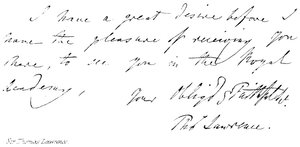 I have a great desire before I
have the pleasure of receiving you
here, to see you in the Royal
Academy,
Your Oblig'd & Faithful
Tho^s Lawrence.
SIR THOMAS LAWRENCE